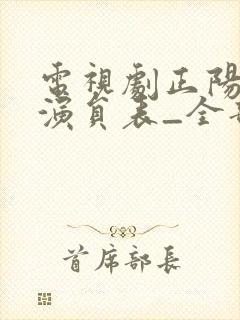 電視劇正陽
演員表_全
首席部長